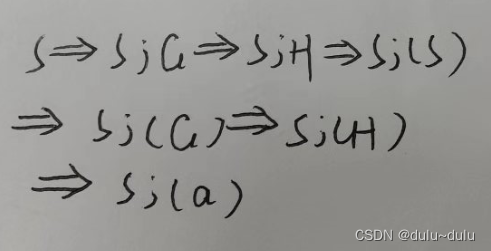 S⇒S;G⇒S;H⇒S;(S)
⇒ S;(G)⇒S;(H)
⇒ S;(a)
CSDN @dulu~dulu